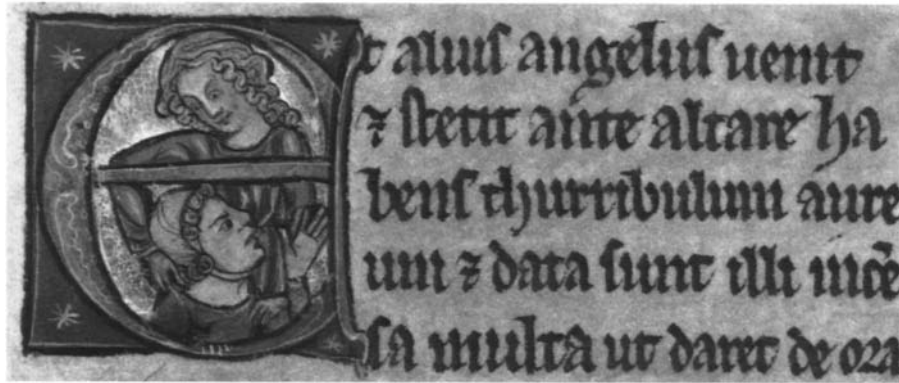 Et alius angelus uenit
⁊ stetit ante altare ha
bens thurribulum aure
um ⁊ data sunt illi incē
sa multa ut daret de ora